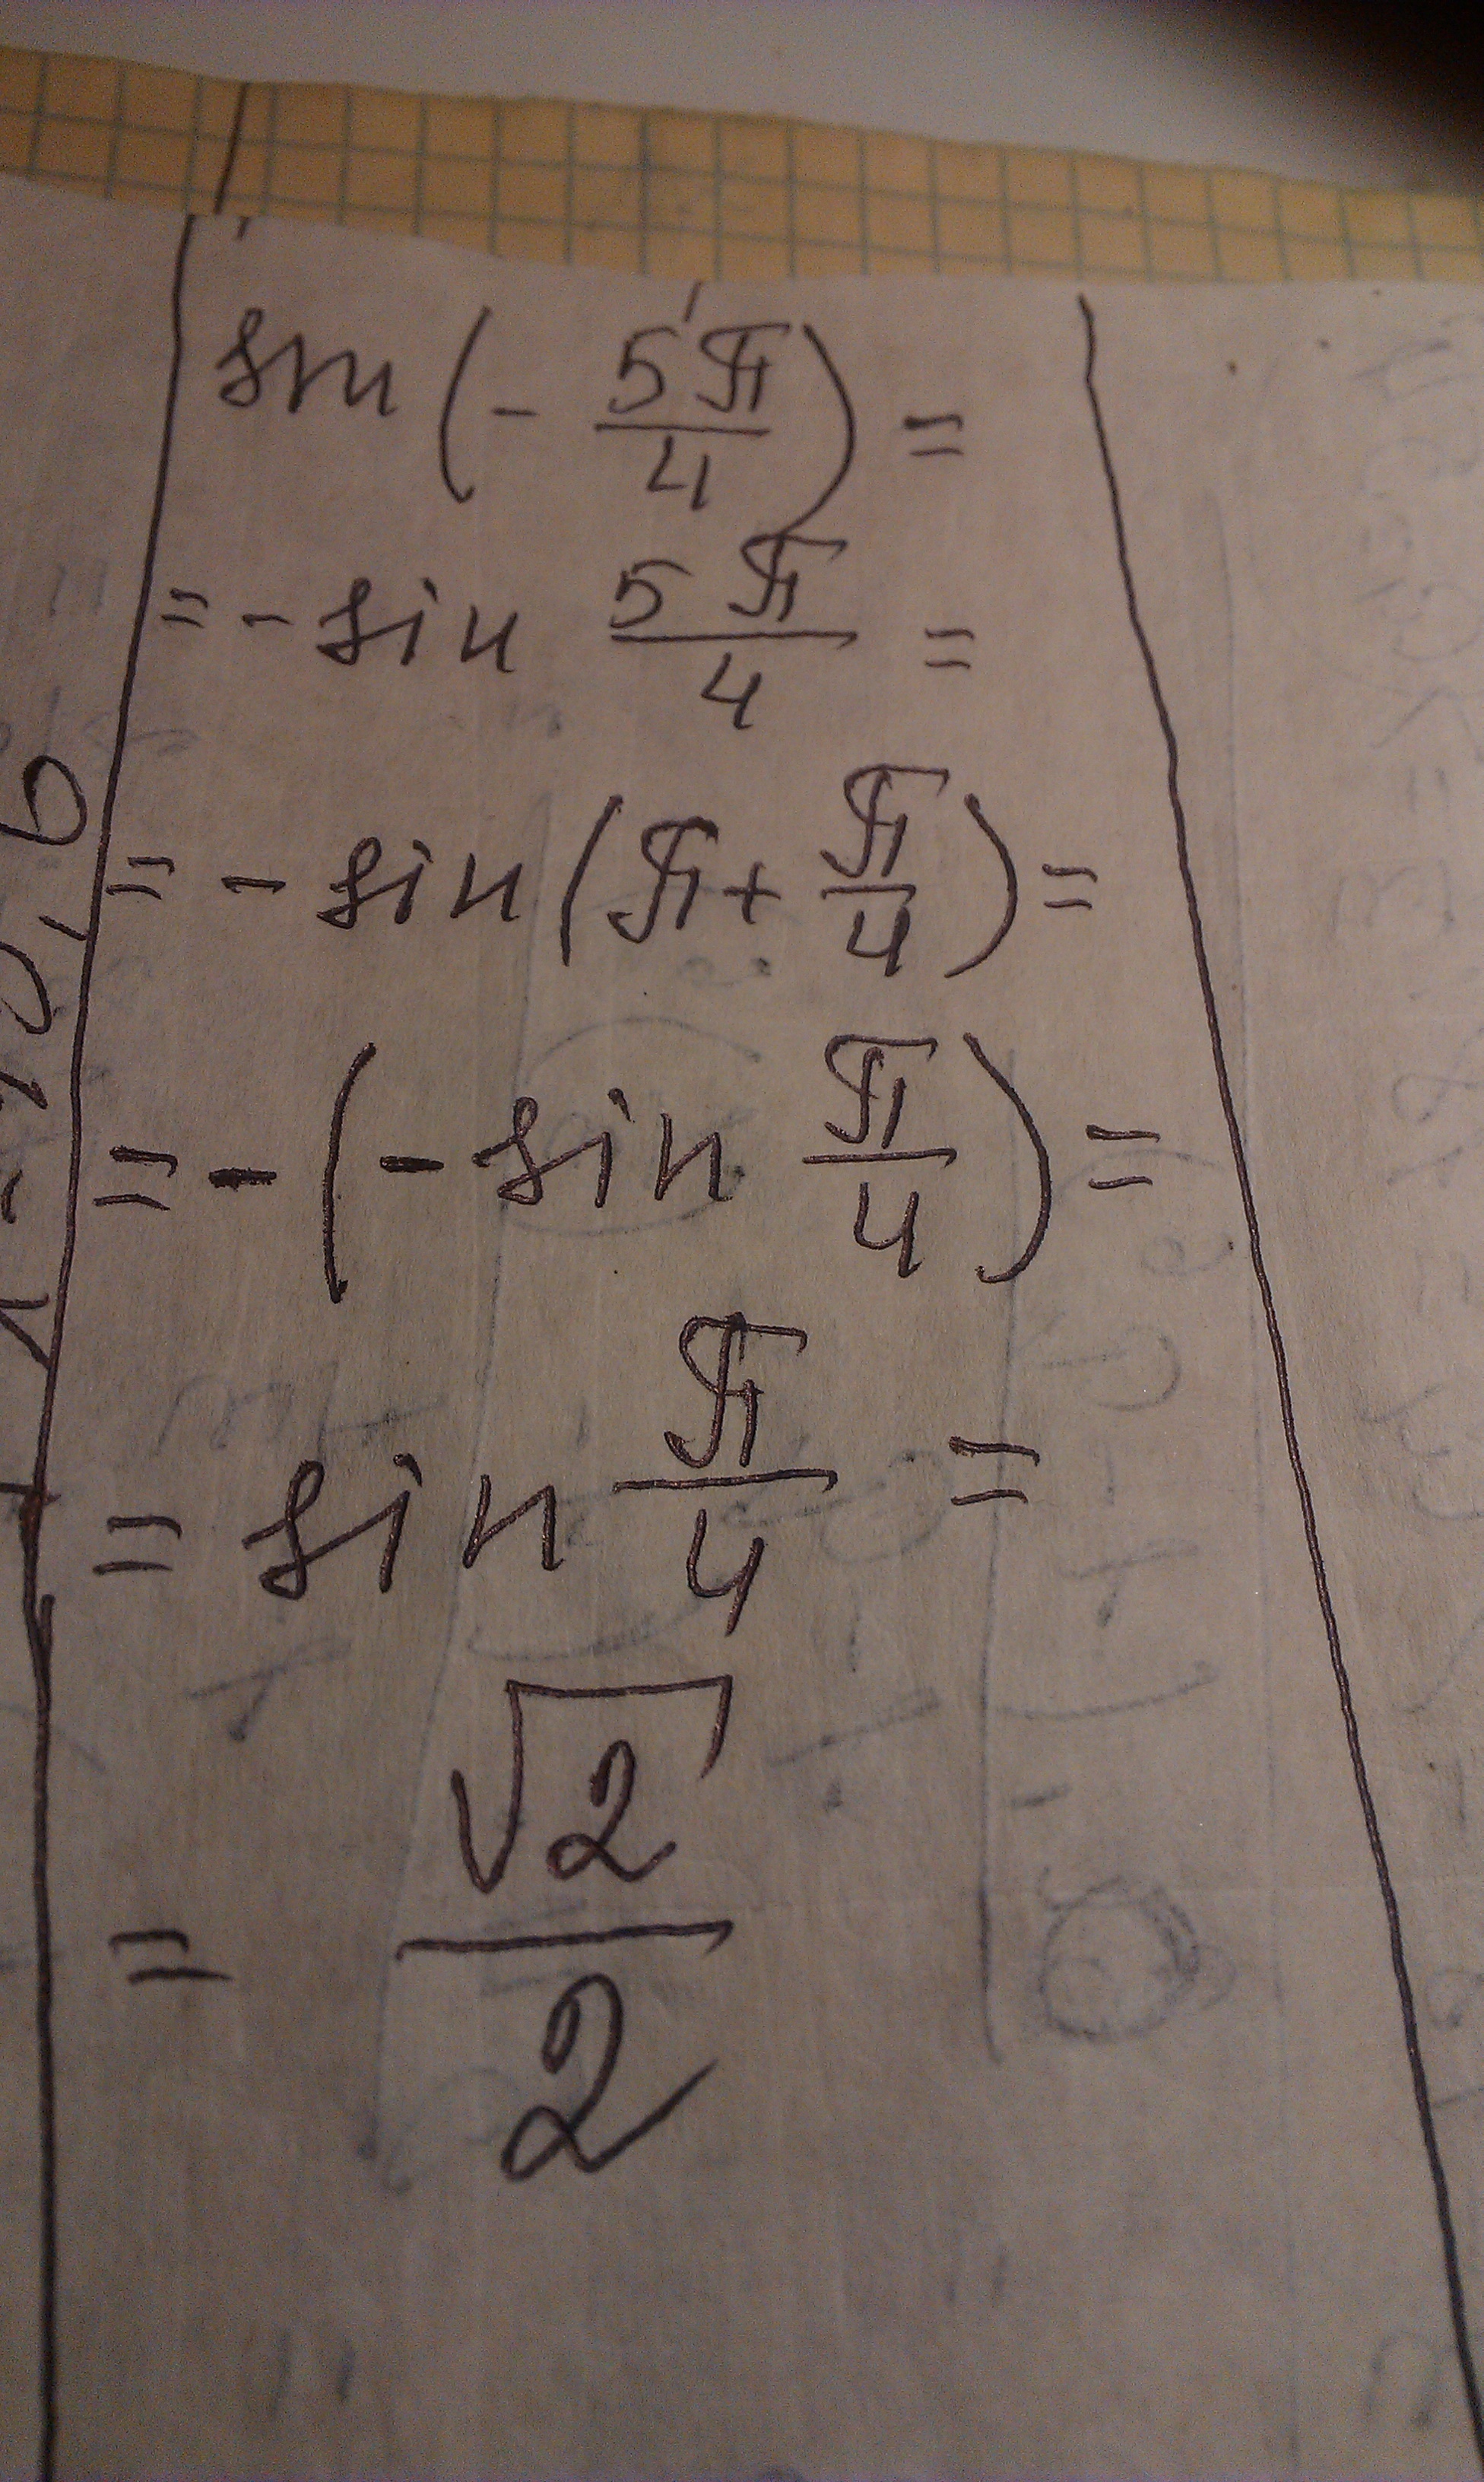 sin (- 5π/4) =
= - sin 5π/4 =
= - sin (π + π/4) =
= - (- sin π/4) =
= sin π/4 =
= √2/2